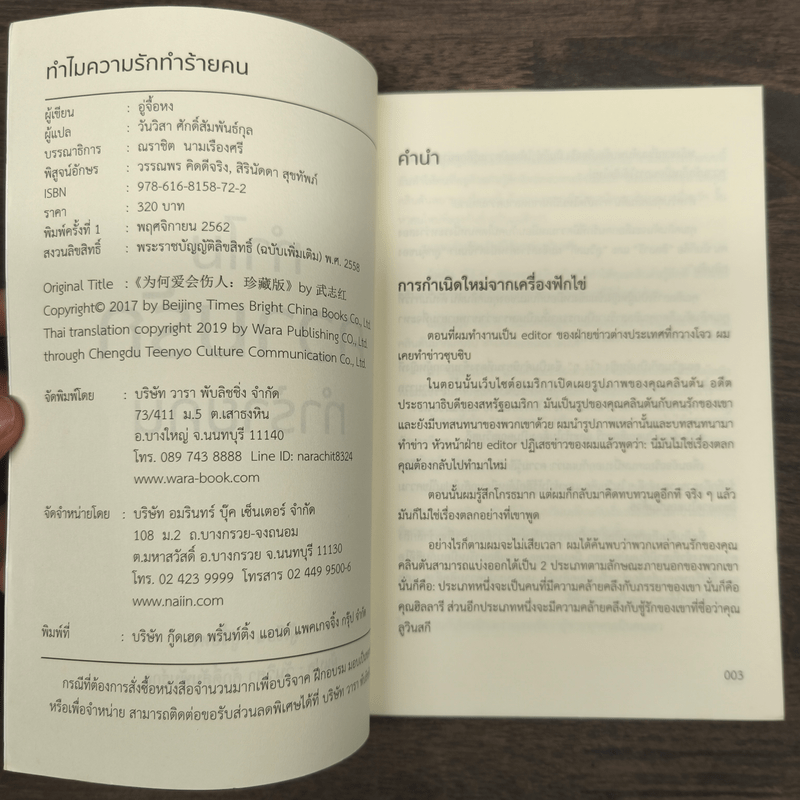 ทำไมความรักทำร้ายคน
ผู้เขียน : อู่จื้อหง
ผู้แปล : วันวิสา ศักดิ์สัมพันธ์กุล
บรรณาธิการ : ณราชิต นามเรืองศรี
พิสูจน์อักษร : วรรณพร คิดดีจริง, สิรินัดดา สุขทัพภ์
ISBN : 978-616-8158-72-2
ราคา : 320 บาท
พิมพ์ครั้งที่ 1 : พฤศจิกายน 2562
สงวนลิขสิทธิ์ : พระราชบัญญัติลิขสิทธิ์ (ฉบับเพิ่มเติม) พ.ศ. 2558
Original Title :《为何爱会伤人：珍藏版》by 武志红
Copyright© 2017 by Beijing Times Bright China Books Co., Ltd.
Thai translation copyright 2019 by Wara Publishing CO., Ltd.
through Chengdu Teenyo Culture Communication Co., Ltd.
จัดพิมพ์โดย : บริษัท วารา พับลิชชิ่ง จำกัด
73/411 ม.5 ต.เสาธงหิน
อ.บางใหญ่ จ.นนทบุรี 11140
โทร. 089 743 8888 Line ID: narachit8324
www.wara-book.com
จัดจำหน่ายโดย : บริษัท อมรินทร์ บุ๊ค เซ็นเตอร์ จำกัด
108 ม.2 ถ.บางกรวย-จงถนอม
ต.มหาสวัสดิ์ อ.บางกรวย จ.นนทบุรี 11130
โทร. 02 423 9999 โทรสาร 02 449 9500-6
www.naiin.com
พิมพ์ที่ : บริษัท กู๊ดเฮด พริ้นท์ติ้ง แอนด์ แพคเกจจิ้ง กรุ๊ป จำกัด
กรณีที่ต้องการสั่งซื้อหนังสือจำนวนมากเพื่อบริจาค ฝึกอบรม
หรือเพื่อจำหน่าย สามารถติดต่อขอรับส่วนลดพิเศษได้ที่ บริษัท วารา
คำนำ
การกำเนิดใหม่จากเครื่องฟักไข่
ตอนที่ผมทำงานเป็น editor ของฝ่ายข่าวต่างประเทศที่กวางโจว ผม
เคยทำข่าวซุบซิบ
ในตอนนั้นเว็บไซต์อเมริกาเปิดเผยรูปภาพของคุณคลินตัน อดีต
ประธานาธิบดีของสหรัฐอเมริกา มันเป็นรูปของคุณคลินตันกับคนรักของเขา
และยังมีบทสนทนาของพวกเขาด้วย ผมนำรูปภาพเหล่านั้นและบทสนทนามา
ทำข่าว หัวหน้าฝ่าย editor ปฏิเสธข่าวของผมแล้วพูดว่า: นี่มันไม่ใช่เรื่องตลก
คุณต้องกลับไปทำมาใหม่
ตอนนั้นผมรู้สึกโกรธมาก แต่ผมก็กลับมาคิดทบทวนดูอีกที จริง ๆ แล้ว
มันก็ไม่ใช่เรื่องตลกอย่างที่เขาพูด
อย่างไรก็ตามผมจะไม่เสียเวลา ผมได้ค้นพบว่าพวกเหล่าคนรักของคุณ
คลินตันสามารถแบ่งออกได้เป็น 2 ประเภทตามลักษณะภายนอกของพวกเขา
นั่นก็คือ: ประเภทหนึ่งจะเป็นคนที่มีความคล้ายคลึงกับภรรยาของเขา นั่นก็คือ
คุณฮิลลารี ส่วนอีกประเภทหนึ่งจะมีความคล้ายคลึงกับชู้รักของเขาที่ชื่อว่าคุณ
ลูวินสกี
003